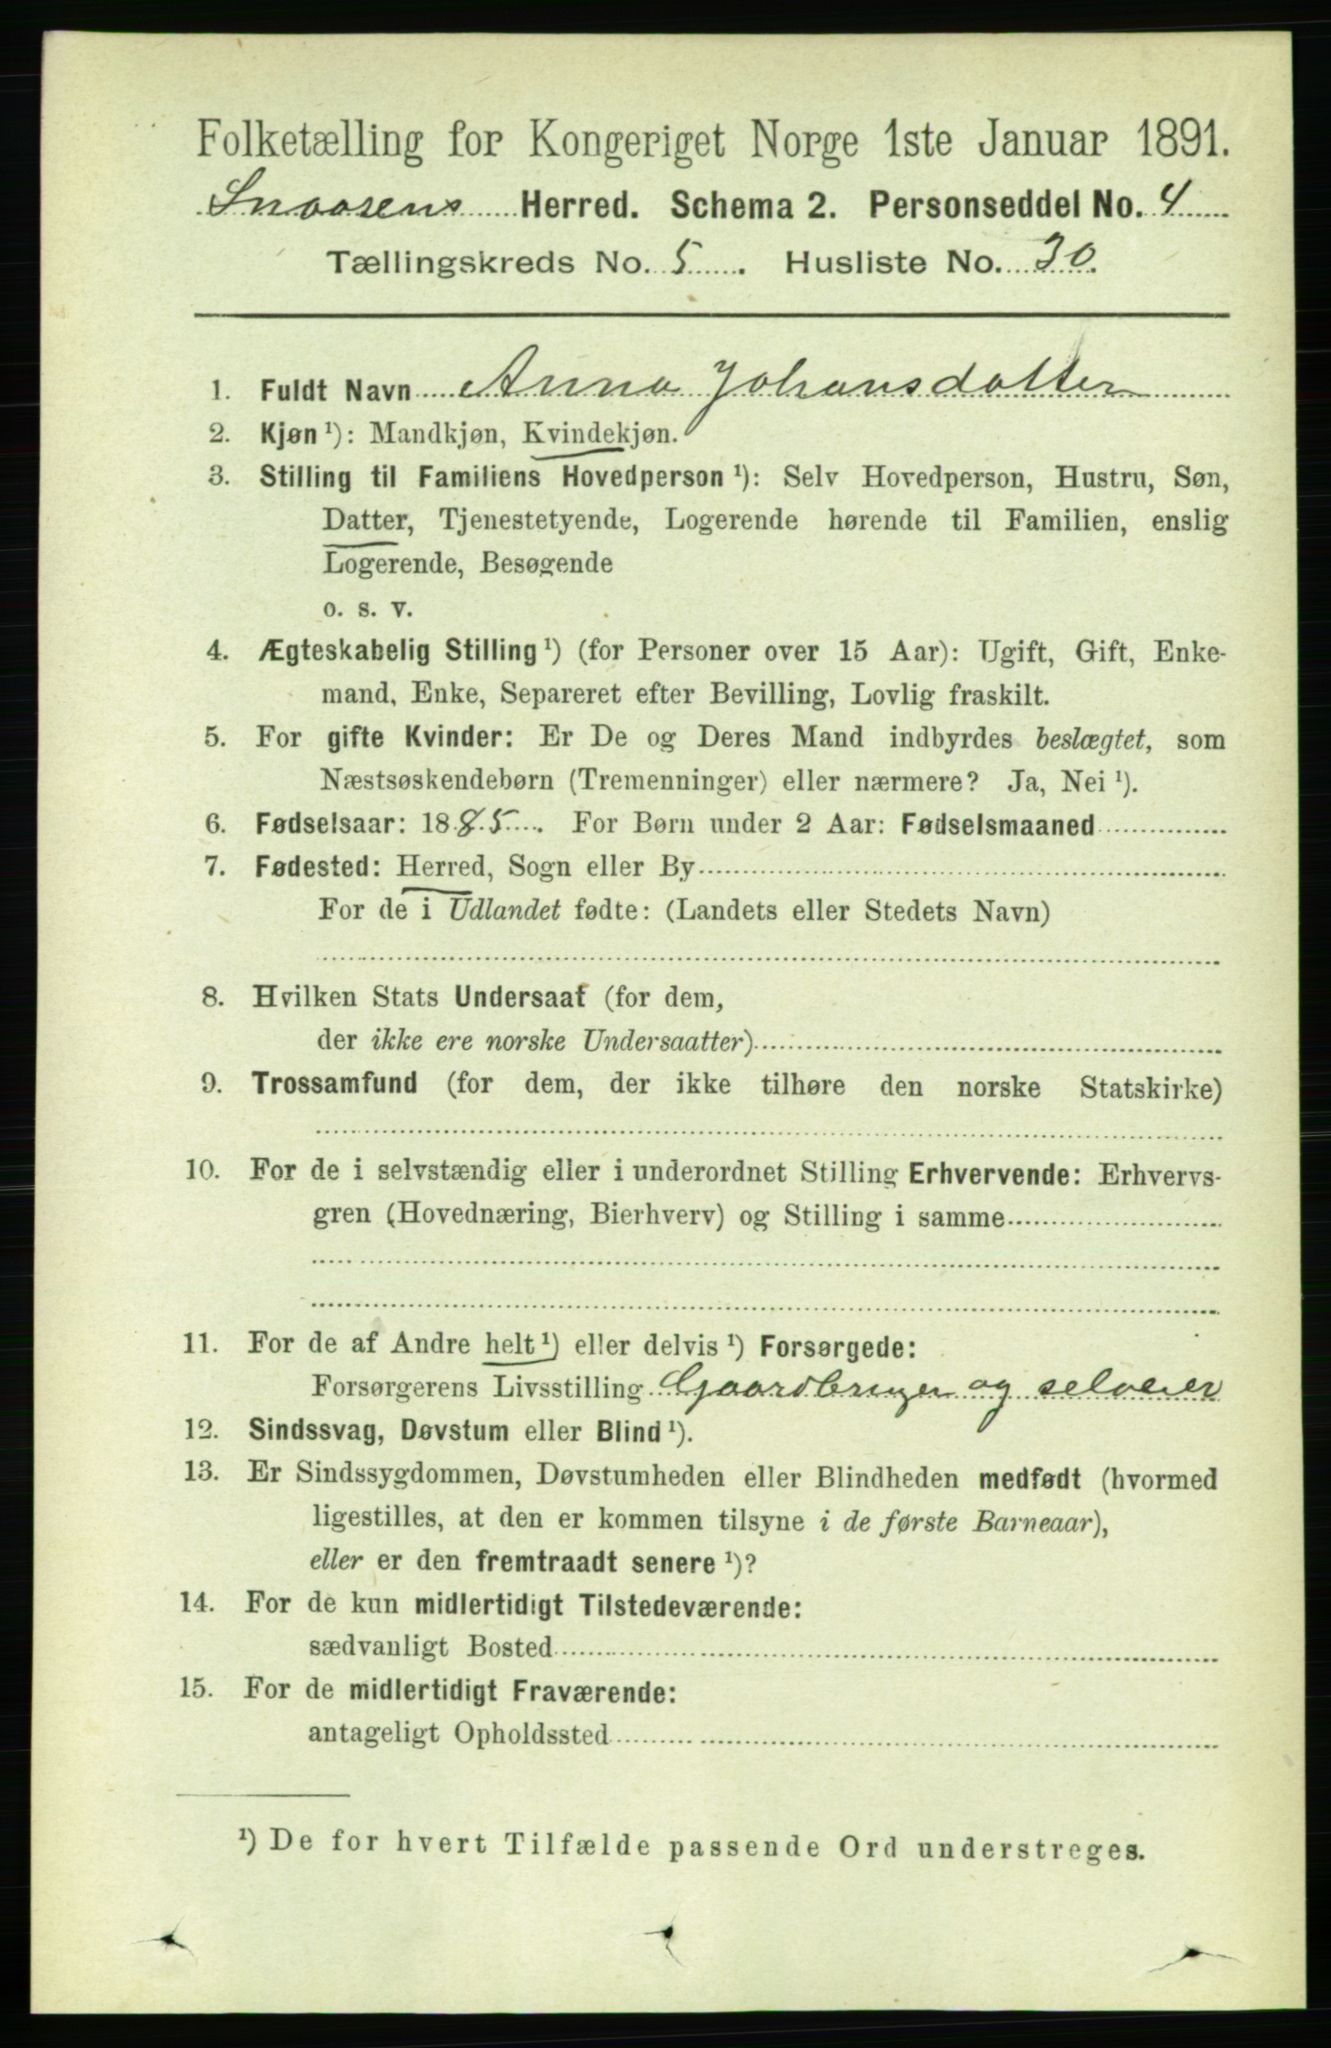 Folketælling for Kongeriget Norge 1ste Januar 1891.
Snaasens Herred. Schema 2. Personseddel No. 4
Tællingskreds No. 5. Husliste No. 30.
1. Fuldt Navn Anna Johansdatter
2. Kjøn ¹): Mandkjøn, Kvindekjøn.
3. Stilling til Familiens Hovedperson ¹): Selv Hovedperson, Hustru, Søn,
Datter, Tjenestetyende, Logerende hørende til Familien, enslig
Logerende, Besøgende
o. s. v.
4. Ægteskabelig Stilling ¹) (for Personer over 15 Aar): Ugift, Gift, Enke-
mand, Enke, Separeret efter Bevilling, Lovlig fraskilt.
5. For gifte Kvinder: Er De og Deres Mand indbyrdes beslægtet, som
Næstsøskendebørn (Tremenninger) eller nærmere? Ja, Nei ¹).
6. Fødselsaar: 1885. For Børn under 2 Aar: Fødselsmaaned
7. Fødested: Herred, Sogn eller By
For de i Udlandet fødte: (Landets eller Stedets Navn)
8. Hvilken Stats Undersaat (for dem,
der ikke ere norske Undersaatter)
9. Trossamfund (for dem, der ikke tilhøre den norske Statskirke)
10. For de i selvstændig eller i underordnet Stilling Erhvervende: Erhvervs-
gren (Hovednæring, Bierhverv) og Stilling i samme
11. For de af Andre helt ¹) eller delvis ¹) Forsørgede:
Forsørgerens Livsstilling Gaardbruger og selveier
12. Sindssvag, Døvstum eller Blind ¹).
13. Er Sindssygdommen, Døvstumheden eller Blindheden medfødt (hvormed
ligestilles, at den er kommen tilsyne i de første Barneaar),
eller er den fremtraadt senere ¹)?
14. For de kun midlertidigt Tilstedeværende:
sædvanligt Bosted
15. For de midlertidigt Fraværende:
antageligt Opholdssted
¹) De for hvert Tilfælde passende Ord understreges.